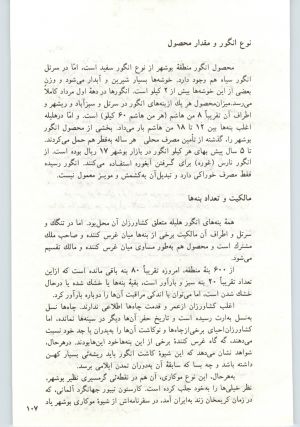 نوع انگور و مقدار محصول
محصول انگور منطقهٔ بوشهر از نوع انگور سفید است، امّا در سرتل
انگور سیاه هم وجود دارد. خوشه‌ها بسیار شیرین و آبدار می‌شود و وزن
بعضی از این خوشه‌ها بیش از ۲ کیلو است. انگورها در دههٔ اول مرداد کاملاً
می‌رسد. میزان محصول هر یک از بنه‌های انگور در سرتل و سبزآباد و ریشهر و
اطراف آن تقریباً ۸ من هاشم (هر من هاشم ۶۰ کیلو) است. و امّا در هلیله
اغلب بنه‌ها بین ۱۲ تا ۱۸ من هاشم بار می‌داد. بخشی از محصول انگور
بوشهر را، گذشته از تأمین مصرف محلی هر ساله به قطر هم حمل می‌کردند.
تا ۵ سال پیش بهای هر کیلو انگور در بازار بوشهر ۱۷ ریال بوده است. از
انگور نارس (غوره) برای گرفتن آبغوره استفاده می‌کنند. انگور رسیده
فقط مصرف خوراکی دارد و تبدیل آن به کشمش و مویز معمول نیست.
مالکیت و تعداد بنه‌ها
همهٔ بنه‌های انگور هلیله متعلق کشاورزان آن محل بود. اما در تنگک و
سرتل و اطراف آن مالکیت برخی از بنه‌ها میان غرس کننده و صاحب ملک
مشترک است و محصول هم به‌طور مساوی میان غرس کننده و مالک تقسیم
می‌شود.
از ۶۰۰ بنهٔ منطقه، امروزه تقریباً ۸۰ بنه باقی مانده است که از این
تعداد تقریباً ۲۰ بنه سبز و بارآور است، بقیهٔ بنه‌ها یا خشک شده یا در حال
خشک شدن است، اما می‌توان با اندکی مراقبت آن‌ها را دوباره بارآور کرد.
اغلب کشاورزان از عمر و قدمت چاه‌ها اطلاعی ندارند. چاه‌ها نسل
به نسل به ارث رسیده است و تاریخ حفر آن‌ها دیگر در سینه‌ها نمانده، اما
کشاورزان احیای برخی از چاه‌ها و نوکاشت آن‌ها را به پدران یا جد خود نسبت
می‌دهند، که گاه غرس کنندهٔ برخی از این بنه‌ها خود این‌ها بودند. در هر حال،
شواهد نشان می‌دهد که این شیوهٔ کاشت انگور باید ریشه‌ای بسیار کهن
داشته باشد و چه بسا که سابقهٔ آن به دوران تمدن ایلامی برسد.
به هر حال، این نوع موکاری، آن هم در نقطه‌ی گرمسیری نظیر بوشهر،
نظر خیلی‌ها را به خود جلب کرده است. کارستن نیبور جهانگرد آلمانی، که
در زمان کریمخان زند به ایران آمد، در سفرنامه‌اش از شیوهٔ موکاری بوشهر یاد
۱۰۷